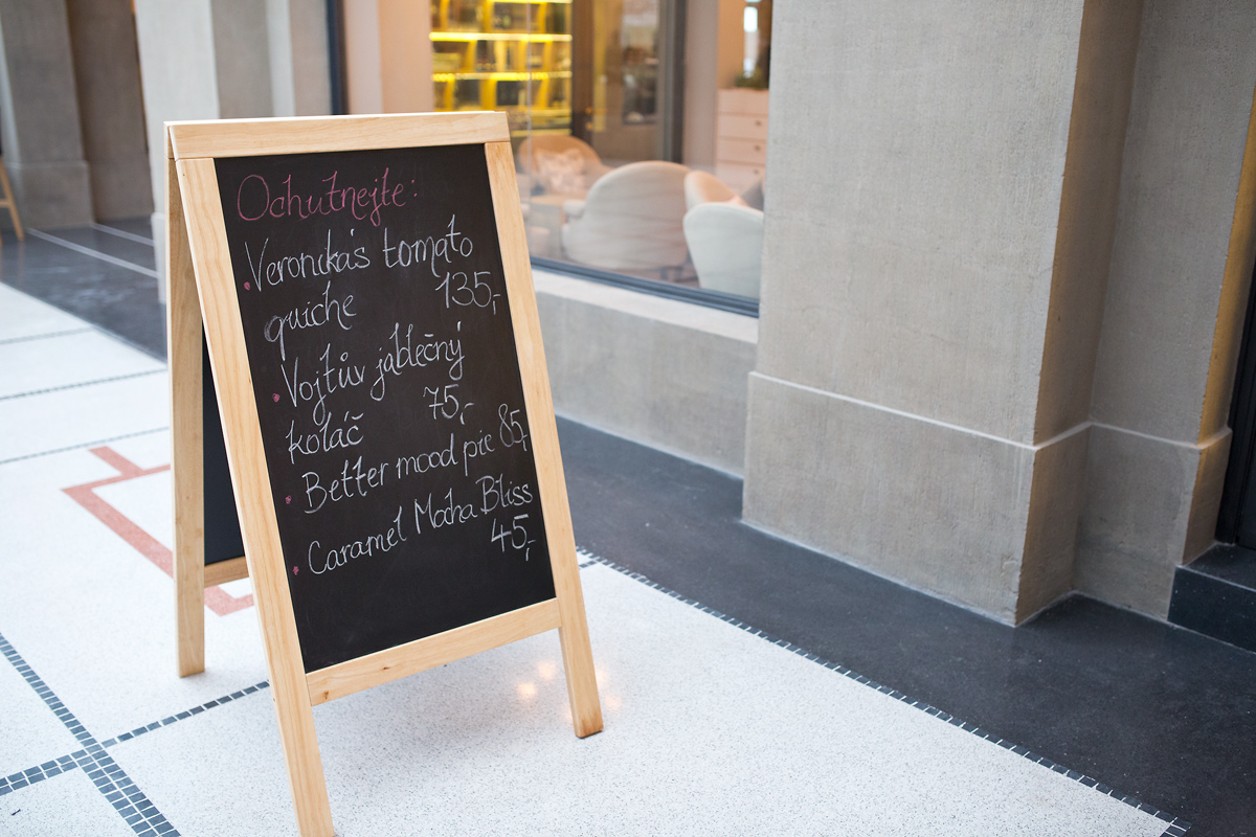 Ochutnejte:
Veronika's tomato
quiche 135,-
Vojtův jablečný
koláč 75,-
Better mood pie 85,-
Caramel Mocha Bliss
45,-